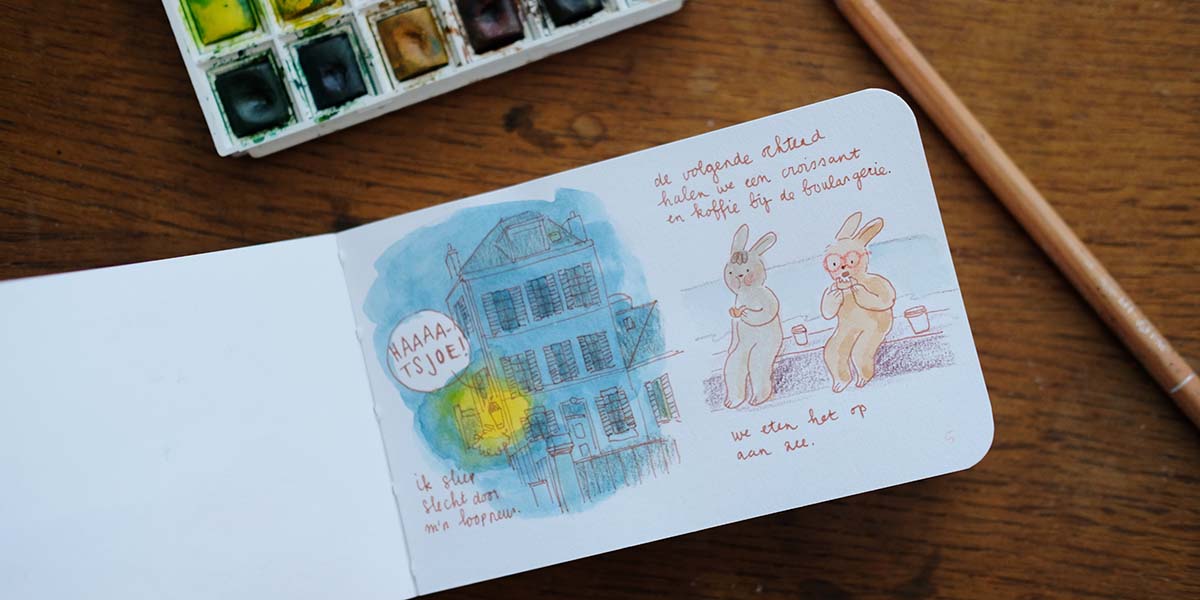 HAAAA-
TSJOE!
ik sliep
slecht door
m'n loopneus.
de volgende ochtend
halen we een croissant
en koffie bij de boulangerie.
we eten het op
aan zee.
5